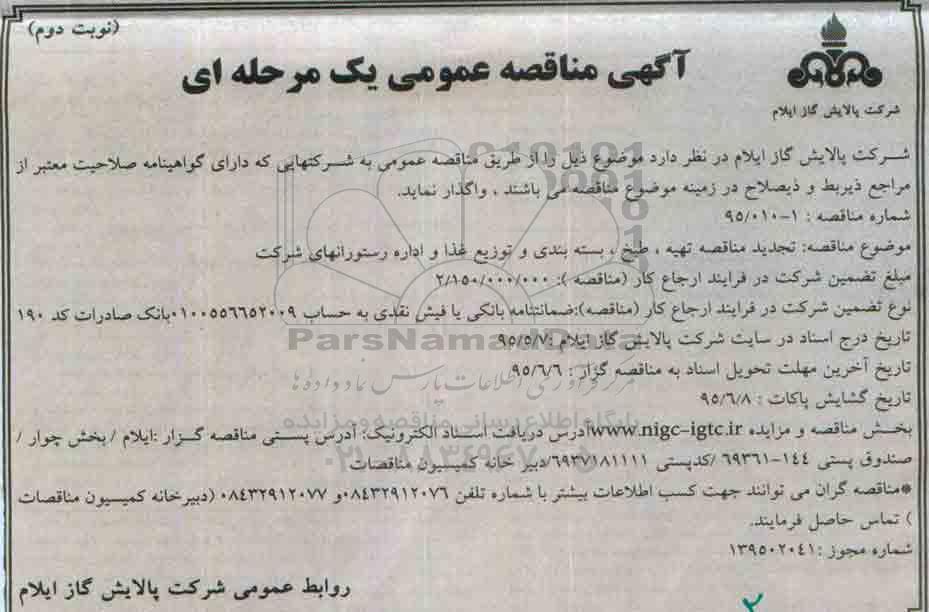 (نوبت دوم)
آگهی مناقصه عمومی یک مرحله ای
شرکت پالایش گاز ایلام
شرکت پالایش گاز ایلام در نظر دارد موضوع ذیل را از طریق مناقصه عمومی به شرکتهایی که دارای گواهینامه صلاحیت معتبر از
مراجع ذیربط و ذیصلاح در زمینه موضوع مناقصه می باشند ، واگذار نماید.
شماره مناقصه : ۱-۹۵/۰۱۰
موضوع مناقصه: تجدید مناقصه تهیه ، طبخ ، بسته بندی و توزیع غذا و اداره رستورانهای شرکت
مبلغ تضمین شرکت در فرایند ارجاع کار (مناقصه ): ۲/۱۵۰/۰۰۰/۰۰۰
نوع تضمین شرکت در فرایند ارجاع کار (مناقصه):ضمانتنامه بانکی یا فیش نقدی به حساب ۰۱۰۰۵۵۶۶۵۲۰۰۹بانک صادرات کد ۱۹۰
تاریخ درج اسناد در سایت شرکت پالایش گاز ایلام :۹۵/۵/۷
تاریخ آخرین مهلت تحویل اسناد به مناقصه گزار : ۹۵/۶/۶
تاریخ گشایش پاکات : ۹۵/۶/۸
بخش مناقصه و مزایده www.nigc-igtc.irآدرس دریافت اسناد الکترونیک: آدرس پستی مناقصه گزار :ایلام / بخش چوار /
صندوق پستی ۱۴۴-۶۹۳۶۱ /کدپستی ۶۹۳۷۱۸۱۱۱۱/دبیر خانه کمیسیون مناقصات
*مناقصه گران می توانند جهت کسب اطلاعات بیشتر با شماره تلفن ۰۸۴۳۲۹۱۲۰۷۶و ۰۸۴۳۲۹۱۲۰۷۷ (دبیرخانه کمیسیون مناقصات
) تماس حاصل فرمایند.
شماره مجوز :۱۳۹۵۰۲۰۴۱
روابط عمومی شرکت پالایش گاز ایلام
۲
ParsNamadData
مرکز فرآوری اطلاعات پارس نماد داده ها
پایگاه اطلاع رسانی مناقصه و مزایده